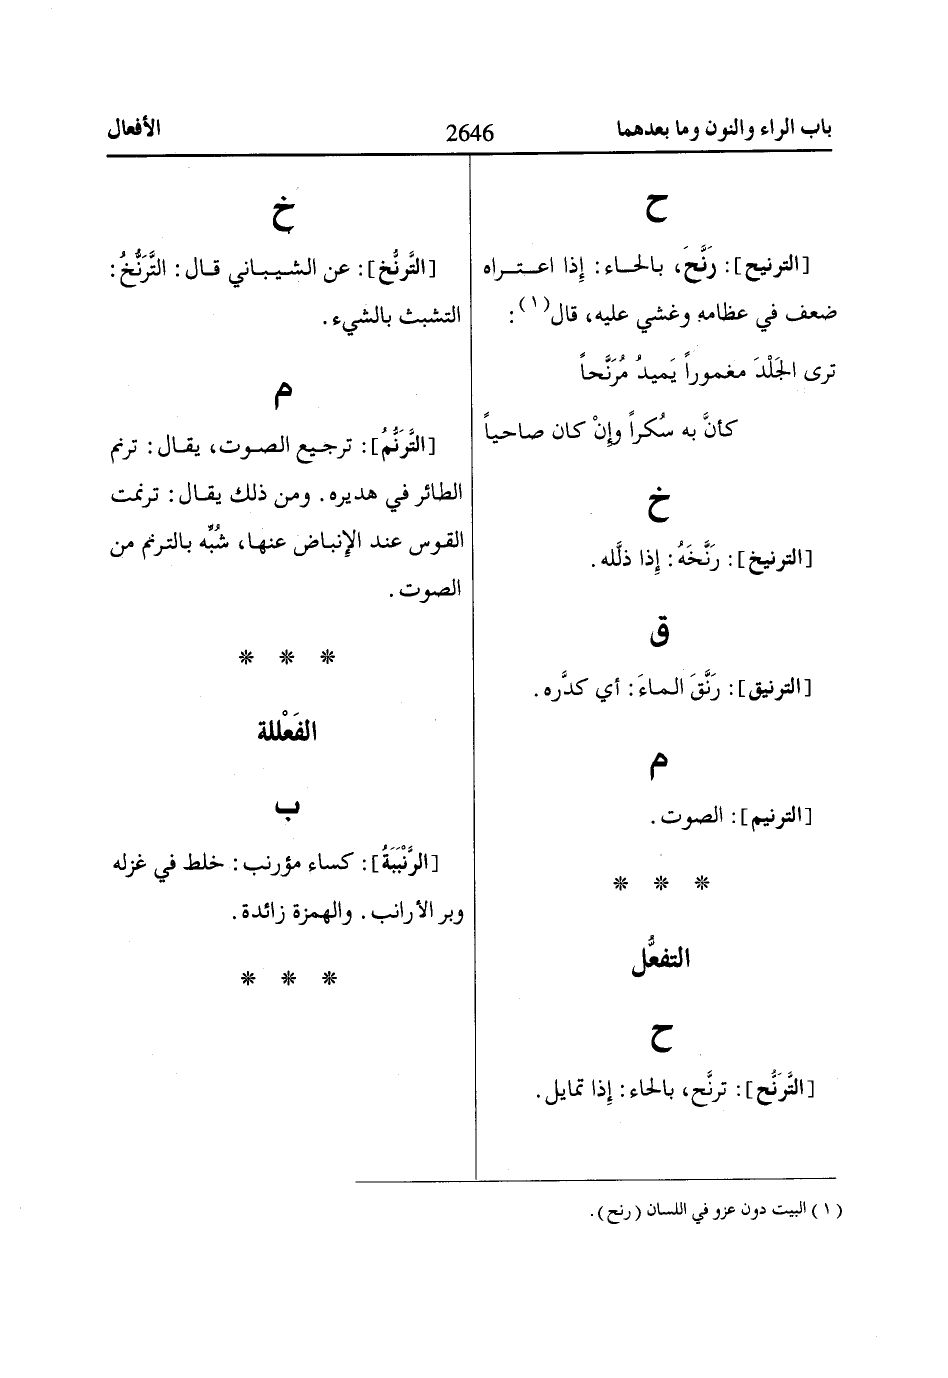 باب الراء والنون وما بعدهما 2646 الأفعال
ح
[الترنيح]: رَنَّحَ، بالحاء: إِذا اعتراه
ضعف في عظامه وغشي عليه، قال(١):
ترى الجَلْدَ مغموراً يَميدُ مُرَنَّحاً
كأنَّ به سُكراً وإِنْ كان صاحياً
خ
[الترنيخ]: رَنَّخَهُ: إِذا ذلَّله.
ق
[الترنيق]: رَنَّقَ الماءَ: أي كدَّره.
م
[الترنيم]: الصوت.
* * *
التفعُّل
ح
[التَّرَنُّح]: ترنَّح، بالحاء: إِذا تمايل.
خ
[التَّرنُّخ]: عن الشيباني قال: التَّرَنُّخُ:
التشبث بالشيء.
م
[التَّرَنُّمُ]: ترجيع الصوت، يقال: ترنم
الطائر في هديره. ومن ذلك يقال: ترنمت
القوس عند الإِنباض عنها، شُبِّه بالترنم من
الصوت.
* * *
الفَعْللة
ب
[الرَّنْبَبَةُ]: كساء مؤرنب: خلط في غزله
وبر الأرانب. والهمزة زائدة.
* * *
(١) البيت دون عزو في اللسان (رنح).